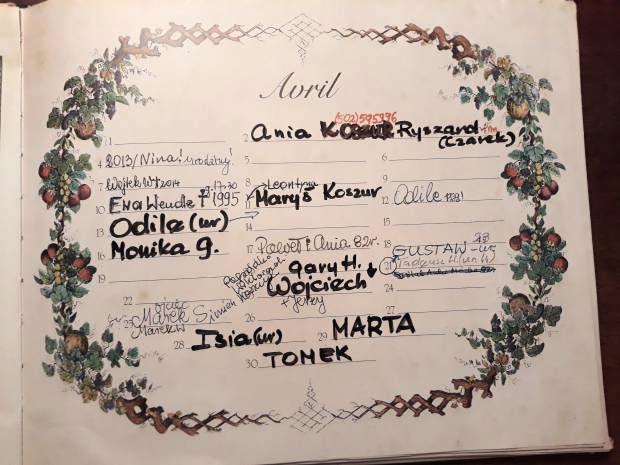 Avril
(502)595996
1
2 Ania KOSZUR Ryszard
(Czarek)
4 2013/Nina! urodziny!
5
6
7 Wojtek W † 2014
8 Leontyna
10 Ewa Wendle † 1995 g.17:30
11 Maryś Koszur
12 Odile 1981
13 Odile (ur)
14
15
16 Monika g.
17 Paweł i Ania 82r.
18 GUSTAW
19
21 Tadeusz H (im.)
Gary H.
22
Wojciech
24
+ Jerzy
25 Marek Simon
Marek W
26
27
28 Isia (ur)
29 MARTA
30 TOMEK